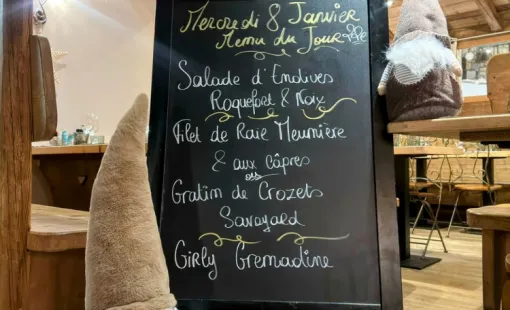 Mercredi 8 Janvier
Menu du Jour
Salade d'Endives
Roquefort & Noix
Filet de Raie Meunière
& aux câpres
Gratin de Crozets
Savoyard
Girly Grenadine